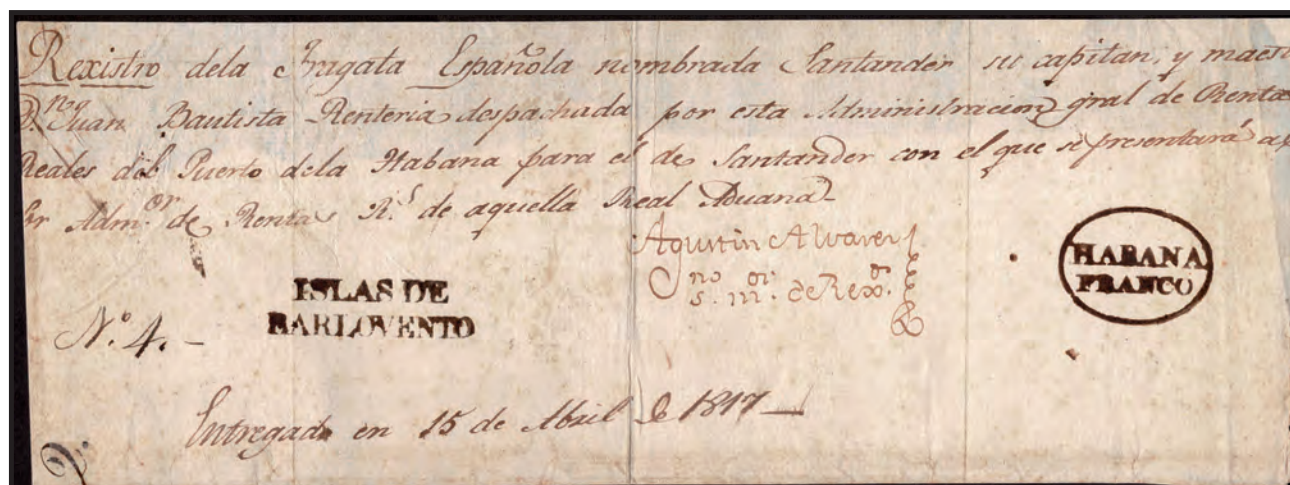 Rexistro dela Fragata Española nombrada Santander su capitan, y maest
D.n Juan Bautista Renteria despachada por esta Administracion gral de Rentas
Reales del Puerto dela Habana para el de Santander con el que se presentará al
Sr Adm.or de Rentas R.s de aquella Real Aduana
Agustin Alvarez
ISLAS DE
BARLOVENTO
HABANA
FRANCO
N.o 4.
Entregado en 15 de Abril de 1817